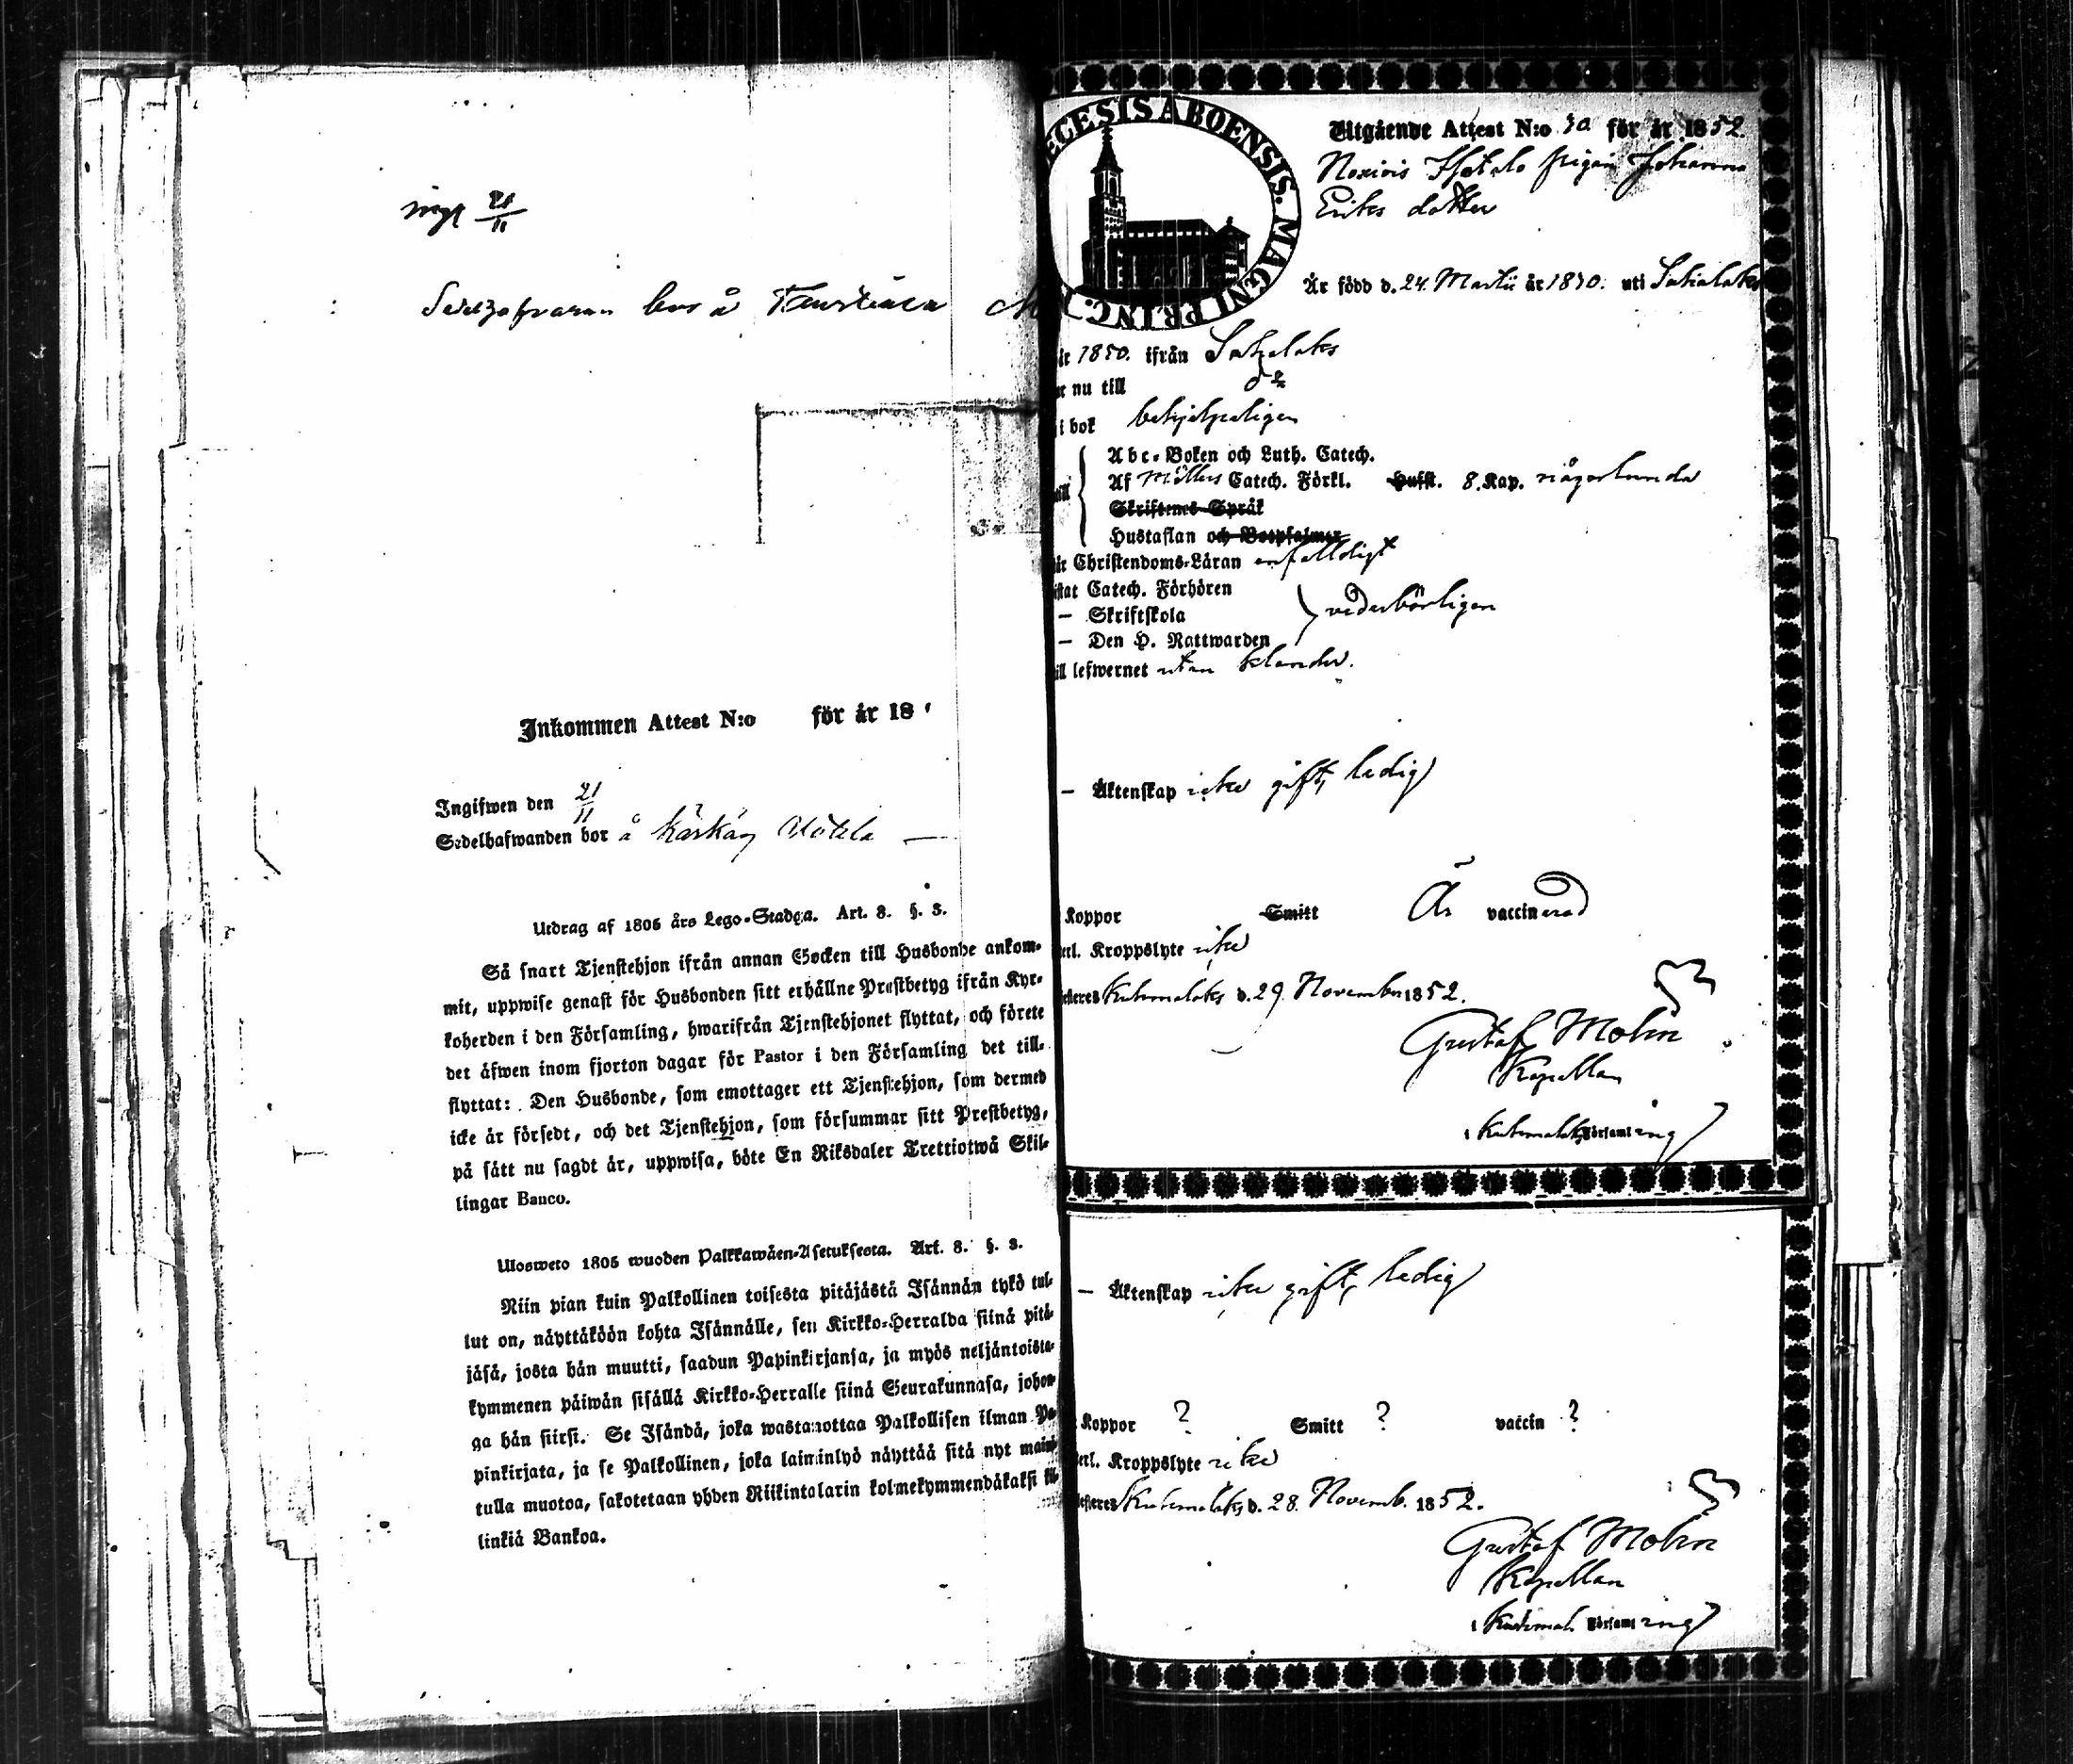 ingf 21/11
Sedelhafvaren bor å
Inkommen Attest N:o för år 18
Ingifwen den 21/11
Sedelhafwanden bor å
Utdrag af 1805 års Lego-Stadga. Art. 8. §. 3.
Så snart Tjenstehjon ifrån annan Socken till Husbonde ankom-
mit, uppwise genast för Husbonden sitt erhållne Prestbetyg ifrån Kyr-
koherden i den Församling, hwarifrån Tjenstehjonet flyttat, och förete
det äfwen inom fjorton dagar för Pastor i den Församling det till-
flyttat: Den Husbonde, som emottager ett Tjenstehjon, som dermed
icke är försedt, och det Tjenstehjon, som försummar sitt Prestbetyg,
på sätt nu sagdt är, uppwisa, böte En Riksdaler Trettiotwå Skil-
lingar Banco.
Ulosweto 1805 wuoden Palkkawäen-Asetuksesta. Art. 8. §. 3.
Niin pian kuin Palkollinen toisesta pitäjästä Isännän tykö tul-
lut on, näyttäköön kohta Isännälle, sen Kirkko-Herralda siinä pitä-
jäsä, josta hän muutti, saadun Papinkirjansa, ja myös neljäntoista-
kymmenen päiwän sisällä Kirkko-Herralle siinä Seurakunnasa, johon-
ga hän siirsi. Se Isändä, joka wastanottaa Palkollisen ilman Pa-
pinkirjata, ja se Palkollinen, joka laiminlyö näyttää sitä nyt mainit-
tulla muotoa, sakotetaan yhden Riikintalarin kolmekymmendäkaksi kil-
linkiä Bankoa.
ECESIS ABOENSIS. MAGNI PRINC.
Utgående Attest N:o 30 för år 1852
pigan Johanna
Eriks dotter
Är född d. 24 Martii år 1830. uti Sahalaks
år 1850. ifrån Sahalaks
nu till d:o
i bok behjelpeligen
Abc-Boken och Luth. Catech.
Af Möllers Catech. Förkl. Hufst. 8. Kap. någorlunda
Skriftenes Språk
Hustaflan och Botpsalmer
Christendoms-Läran enfalldigt
Catech. Förhören
— Skriftskola vederbörligen
— Den H. Nattwarden
till lefwernet utan klander.
— Äktenskap icke gift, ledig
Koppor Smitt Är vaccinerad
Kroppslyte icke
Kuhmalaks d. 29. November 1852.
Gustaf Molin
Kapellan
i Kuhmalaks Församling
— Äktenskap icke gift, ledig
Koppor ? Smitt ? vaccin ?
Kroppslyte icke
Kuhmalaks d. 28. Novemb. 1852.
Gustaf Molin
Kapellan
i Kuhmal. Församling